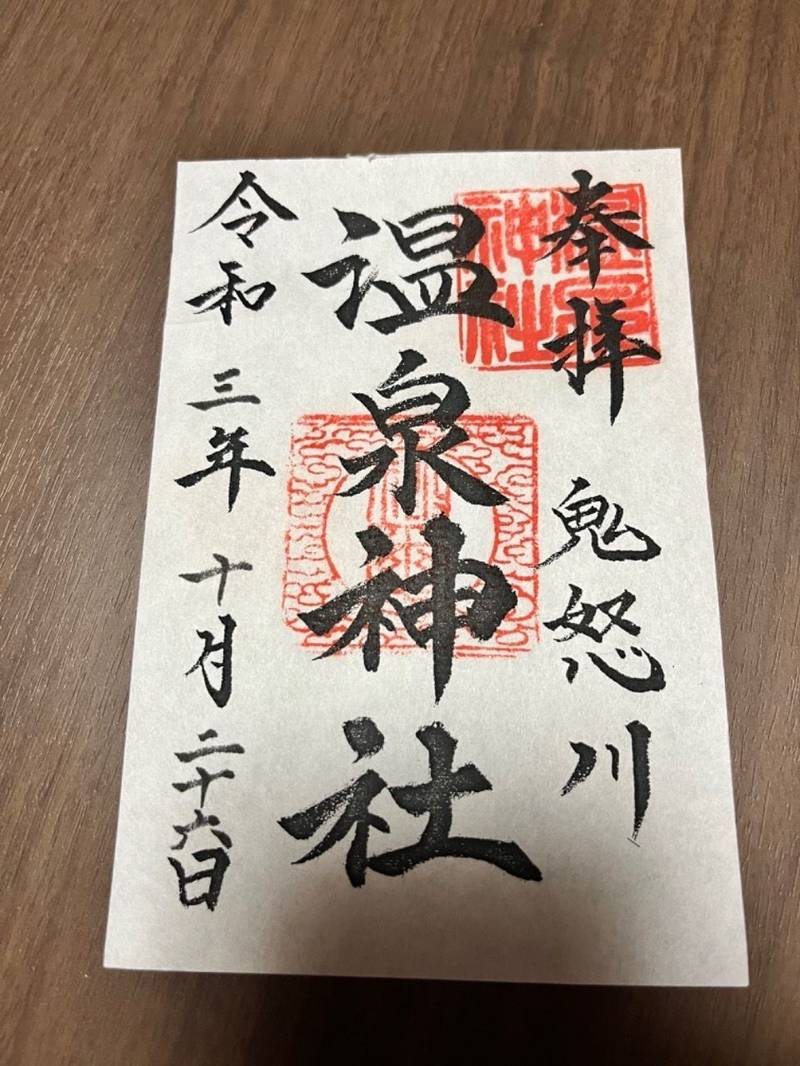 奉拝 鬼怒川
温泉神社
令和三年十月二十六日